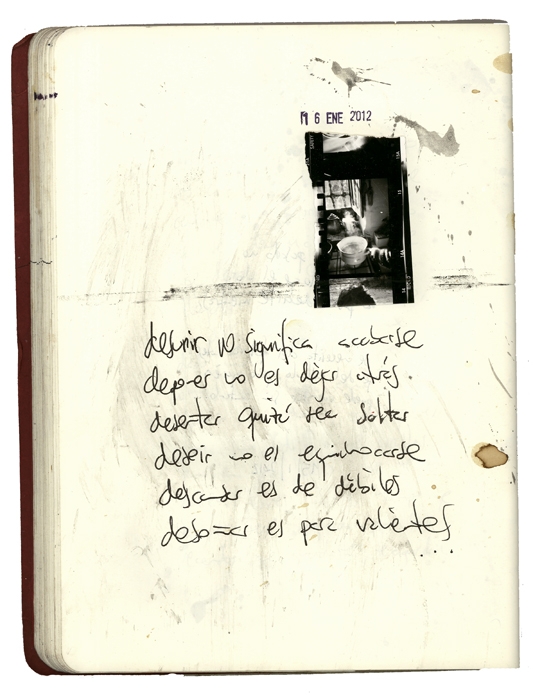 1 6 ENE 2012
desunir no significa acabarse
no es dejar atrás.
desertar quizá sea saltar
no es equivocarse
descansar es de débiles
es para valientes
...